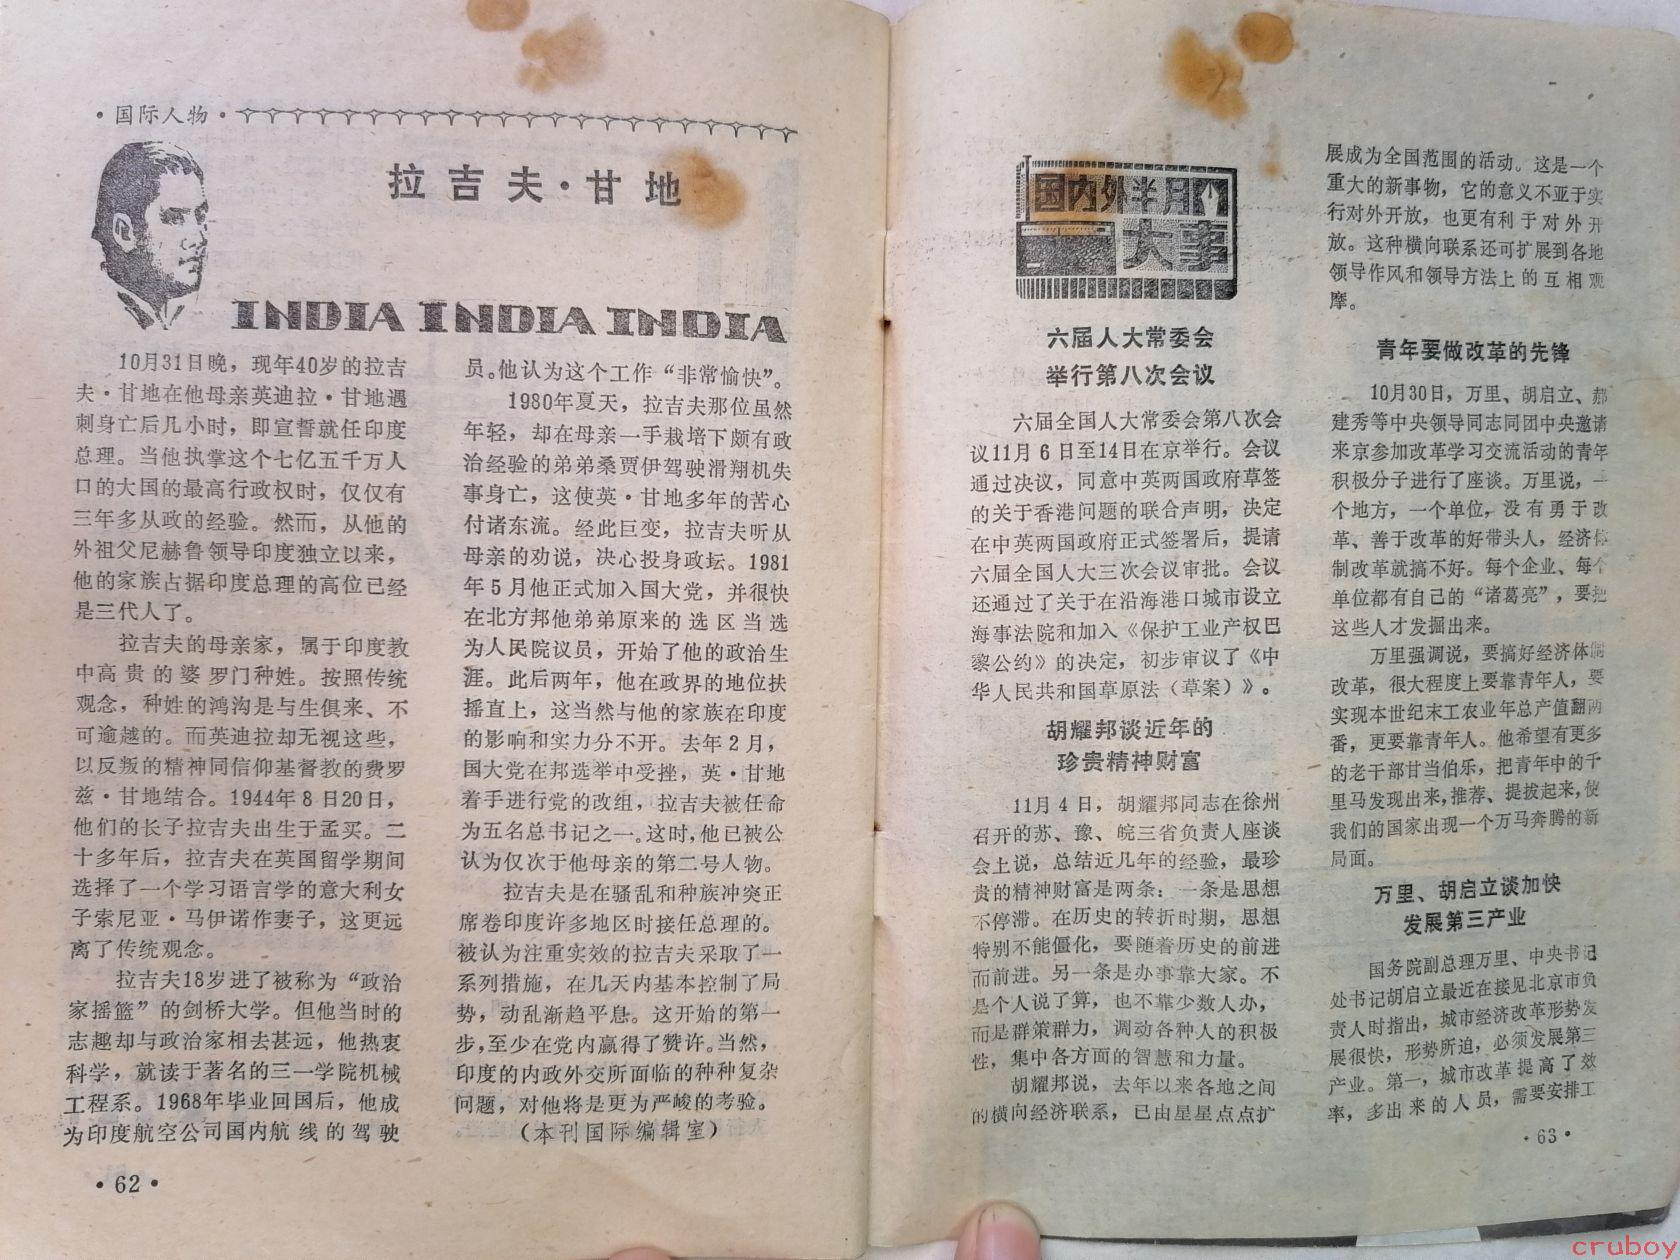 ·国际人物·
拉吉夫·甘地
INDIA INDIA INDIA
10月31日晚，现年40岁的拉吉
夫·甘地在他母亲英迪拉·甘地遇
刺身亡后几小时，即宣誓就任印度
总理。当他执掌这个七亿五千万人
口的大国的最高行政权时，仅仅有
三年多从政的经验。然而，从他的
外祖父尼赫鲁领导印度独立以来，
他的家族占据印度总理的高位已经
是三代人了。
拉吉夫的母亲家，属于印度教
中高贵的婆罗门种姓。按照传统
观念，种姓的鸿沟是与生俱来、不
可逾越的。而英迪拉却无视这些，
以反叛的精神同信仰基督教的费罗
兹·甘地结合。1944年8日20日，
他们的长子拉吉夫出生于孟买。二
十多年后，拉吉夫在英国留学期间
选择了一个学习语言学的意大利女
子索尼亚·马伊诺作妻子，这更远
离了传统观念。
拉吉夫18岁进了被称为“政治
家摇篮”的剑桥大学。但他当时的
志趣却与政治家相去甚远，他热衷
科学，就读于著名的三一学院机械
工程系。1968年毕业回国后，他成
为印度航空公司国内航线的驾驶
员。他认为这个工作“非常愉快”。
1980年夏天，拉吉夫那位虽然
年轻，却在母亲一手栽培下颇有政
治经验的弟弟桑贾伊驾驶滑翔机失
事身亡，这使英·甘地多年的苦心
付诸东流。经此巨变，拉吉夫听从
母亲的劝说，决心投身政坛。1981
年5月他正式加入国大党，并很快
在北方邦他弟弟原来的选区当选
为人民院议员，开始了他的政治生
涯。此后两年，他在政界的地位扶
摇直上，这当然与他的家族在印度
的影响和实力分不开。去年2月，
国大党在邦选举中受挫，英·甘地
着手进行党的改组，拉吉夫被任命
为五名总书记之一。这时，他已被公
认为仅次于他母亲的第二号人物。
拉吉夫是在骚乱和种族冲突正
席卷印度许多地区时接任总理的。
被认为注重实效的拉吉夫采取了一
系列措施，在几天内基本控制了局
势，动乱渐趋平息。这开始的第一
步，至少在党内赢得了赞许。当然，
印度的内政外交所面临的种种复杂
问题，对他将是更为严峻的考验。
（本刊国际编辑室）
·62·
国内外半月
大事
六届人大常委会
举行第八次会议
六届全国人大常委会第八次会
议11月6日至14日在京举行。会议
通过决议，同意中英两国政府草签
的关于香港问题的联合声明，决定
在中英两国政府正式签署后，提请
六届全国人大三次会议审批。会议
还通过了关于在沿海港口城市设立
海事法院和加入《保护工业产权巴
黎公约》的决定，初步审议了《中
华人民共和国草原法（草案）》。
胡耀邦谈近年的
珍贵精神财富
11月4日，胡耀邦同志在徐州
召开的苏、豫、皖三省负责人座谈
会上说，总结近几年的经验，最珍
贵的精神财富是两条：一条是思想
不停滞。在历史的转折时期，思想
特别不能僵化，要随着历史的前进
而前进。另一条是办事靠大家。不
是个人说了算，也不靠少数人办，
而是群策群力，调动各种人的积极
性，集中各方面的智慧和力量。
胡耀邦说，去年以来各地之间
的横向经济联系，已由星星点点扩
展成为全国范围的活动。这是一个
重大的新事物，它的意义不亚于实
行对外开放，也更有利于对外开
放。这种横向联系还可扩展到各地
领导作风和领导方法上的互相观
摩。
青年要做改革的先锋
10月30日，万里、胡启立、郝
建秀等中央领导同志同团中央邀请
来京参加改革学习交流活动的青年
积极分子进行了座谈。万里说，一
个地方，一个单位，没有勇于改
革、善于改革的好带头人，经济体
制改革就搞不好。每个企业、每个
单位都有自己的“诸葛亮”，要把
这些人才发掘出来。
万里强调说，要搞好经济体制
改革，很大程度上要靠青年人，要
实现本世纪末工农业年总产值翻两
番，更要靠青年人。他希望有更多
的老干部甘当伯乐，把青年中的千
里马发现出来，推荐、提拔起来，使
我们的国家出现一个万马奔腾的新
局面。
万里、胡启立谈加快
发展第三产业
国务院副总理万里、中央书记
处书记胡启立最近在接见北京市负
责人时指出，城市经济改革形势发
展很快，形势所迫，必须发展第三
产业。第一，城市改革提高了效
率，多出来的人员，需要安排工
·63·
cruboy